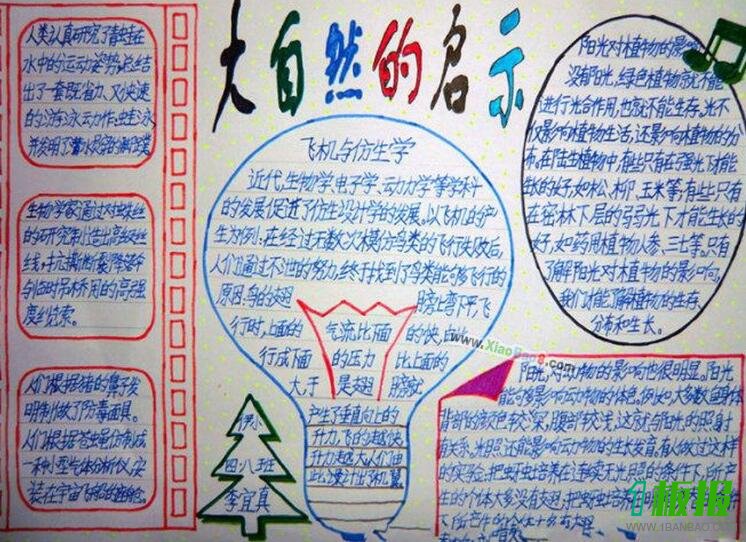 大自然的启示
人类认真研究了青蛙在
水中的运动姿势,总结
出了一套既省力、又快速
的游泳动作:蛙泳
生物学家通过对蛛丝
的研究制造出高级丝
线,抗撕断裂降落伞
与临时吊桥用的高强
度缆索。
人们根据猪的鼻子发
明制做了防毒面具。
人们根据苍蝇仿制成
一种小型气体分析仪,安
装在宇宙飞船的座舱。
飞机与仿生学
近代,生物学、电子学、动力学等学科
的发展促进了仿生设计学的发展。以飞机的产
生为例:在经过无数次模仿鸟类的飞行失败后,
人们通过不泄的努力,终于找到了鸟类能够飞行的
原因:鸟的翅膀上弯下平,飞
行时,上面的气流比下面的快,由此
行成下面的压力比上面的
大于是翅膀就
产生了垂直向上的
升力,飞的越快,
升力越大。人们由
此设计出飞机翼
伊小
四八班
李宜真
阳光对植物的影响
没有阳光,绿色植物就不能
进行光合作用,也就不能生存。光不
仅影响植物生活,还影响植物的分
布,在陆生植物中,有些只有在强光下才能
生长的好,如松、柳、玉米等,有些只有
在密林下层的弱光下才能生长的
好,如药用植物人参、三七等,只有
了解阳光对植物的影响,
我们才能了解植物的生存、
分布和生长。
www.XiaoBao8.com
阳光,对动物的影响也很明显,阳光
能够影响动物的体色,例如,大多数鱼身体
背部的颜色较深,腹部较浅,这就与阳光的照射
有关系,光照还能影响动物的生长发育,有人做过这样
的实验:把蚜虫培养在连续无光照的条件下,所产
生的个体大多没有翅,把蚜虫培养
1板报
WWW.1BANBAO.COM